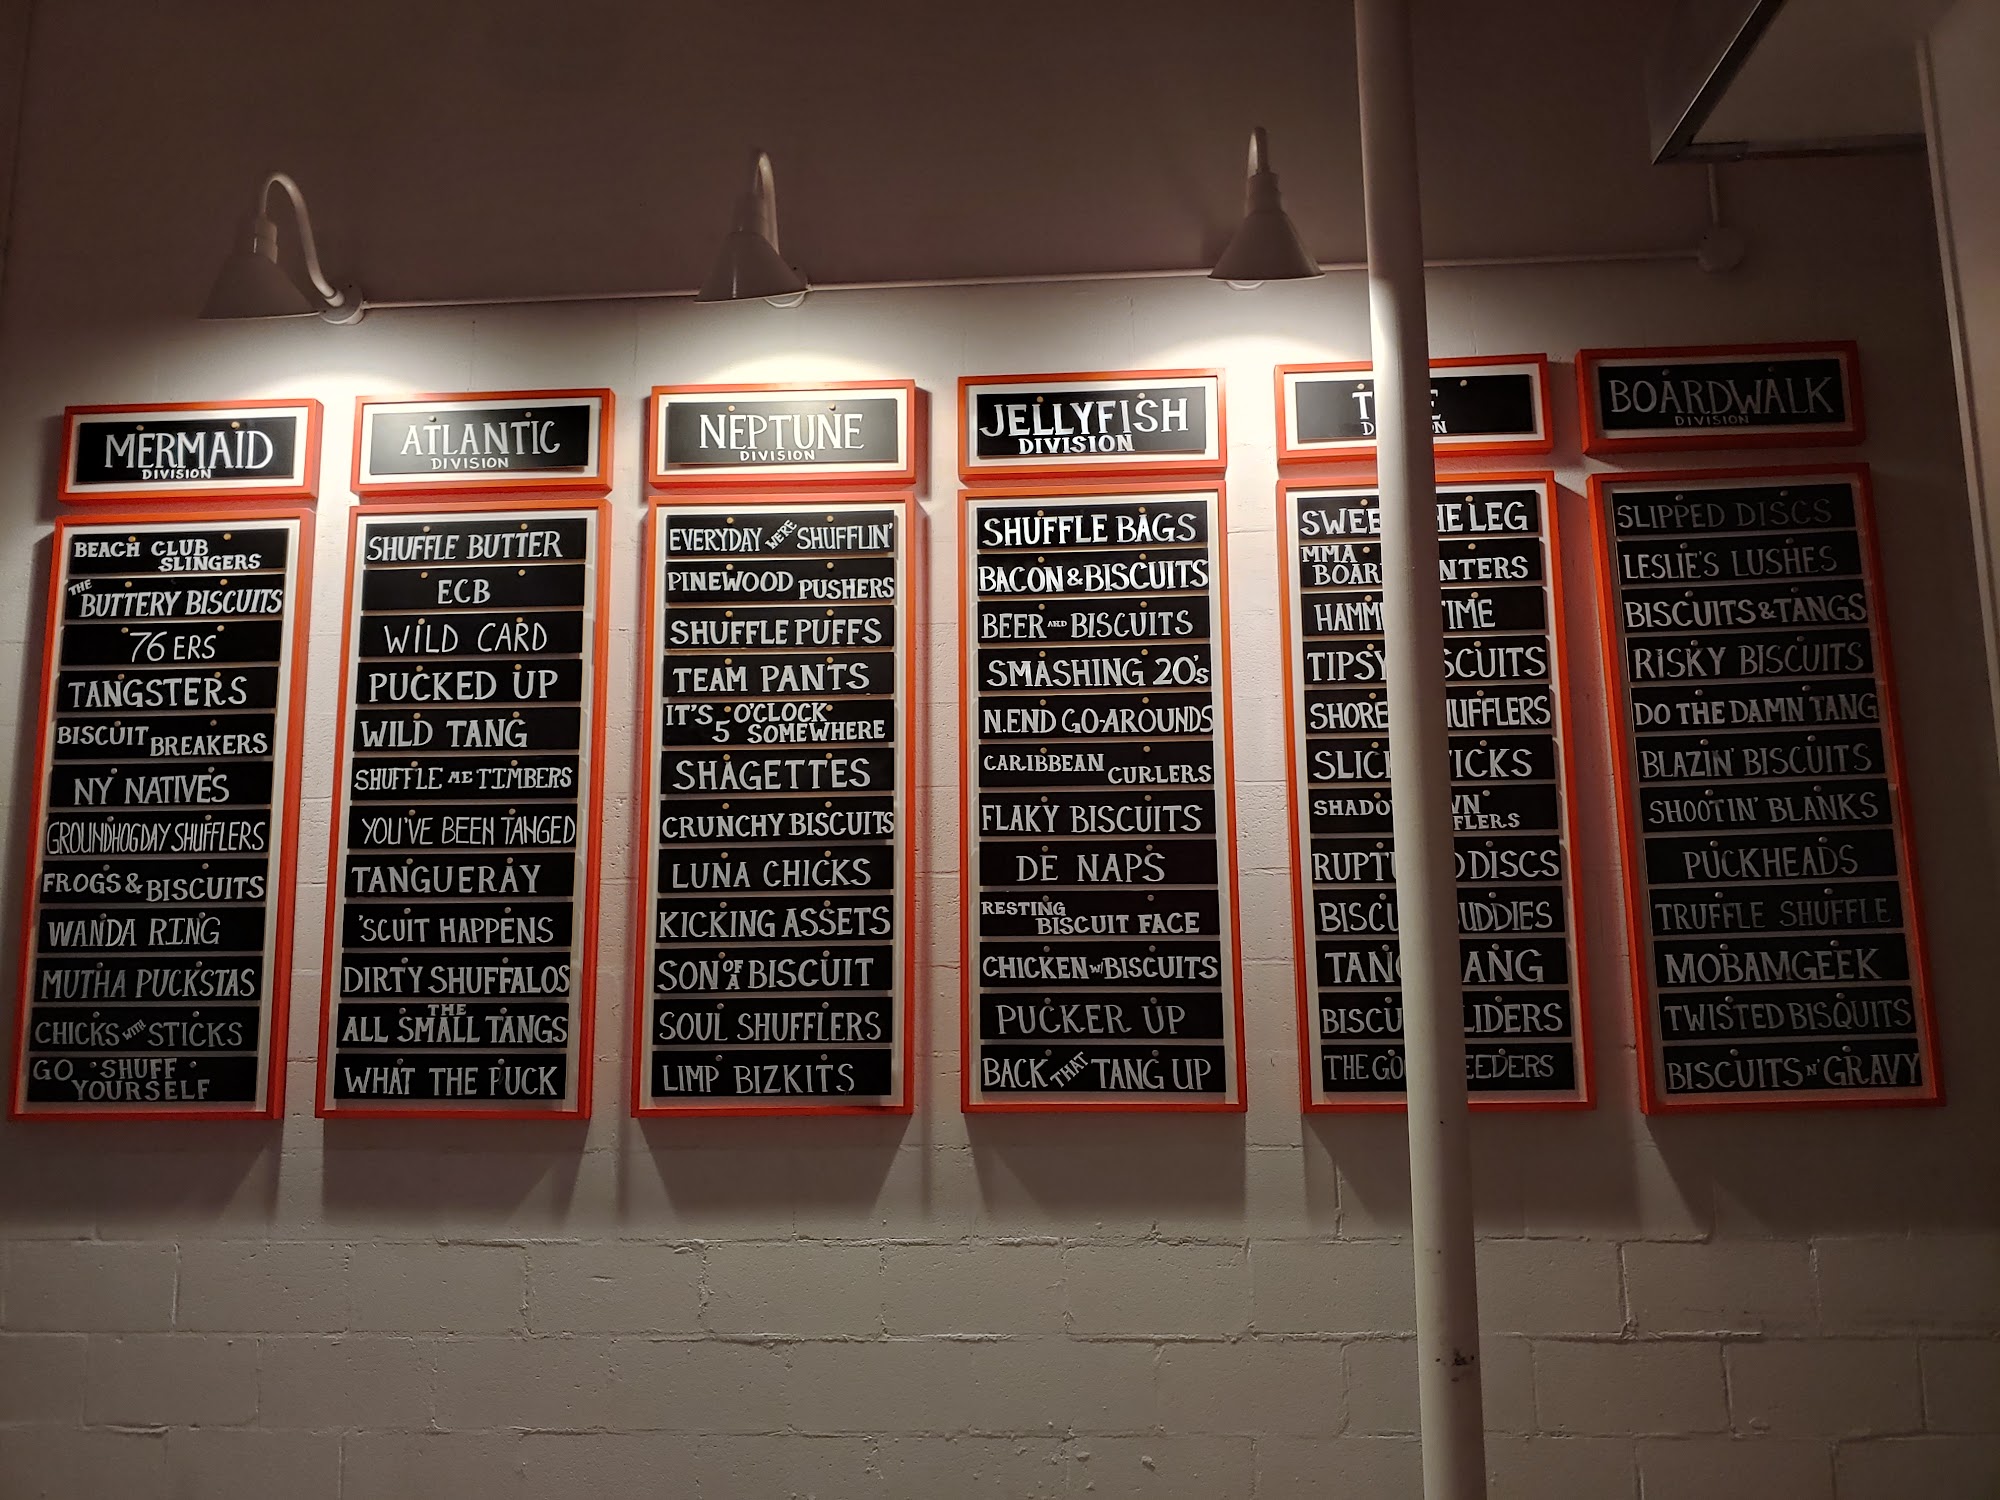 MERMAID
DIVISION
BEACH CLUB
SLINGERS
THE
BUTTERY BISCUITS
76ERS
TANGSTERS
BISCUIT BREAKERS
NY NATIVES
GROUNDHOG DAY SHUFFLERS
FROGS & BISCUITS
WANDA RING
MUTHA PUCKSTAS
CHICKS WITH STICKS
GO SHUFF
YOURSELF
ATLANTIC
DIVISION
SHUFFLE BUTTER
ECB
WILD CARD
PUCKED UP
WILD TANG
SHUFFLE ME TIMBERS
YOU'VE BEEN TANGED
TANGUERAY
'SCUIT HAPPENS
DIRTY SHUFFALOS
THE
ALL SMALL TANGS
WHAT THE PUCK
NEPTUNE
DIVISION
EVERYDAY WE'RE SHUFFLIN'
PINEWOOD PUSHERS
SHUFFLE PUFFS
TEAM PANTS
IT'S 5 O'CLOCK
SOMEWHERE
SHAGETTES
CRUNCHY BISCUITS
LUNA CHICKS
KICKING ASSETS
SON OF A BISCUIT
SOUL SHUFFLERS
LIMP BIZKITS
JELLYFISH
DIVISION
SHUFFLE BAGS
BACON & BISCUITS
BEER AND BISCUITS
SMASHING 20's
N.END GO-AROUNDS
CARIBBEAN CURLERS
FLAKY BISCUITS
DE NAPS
RESTING
BISCUIT FACE
CHICKEN W/ BISCUITS
PUCKER UP
BACK THAT TANG UP
T E
D N
SWEE HE LEG
MMA
BOAR NTERS
HAMM TIME
TIPSY SCUITS
SHORE UFFLERS
SLICK ICKS
SHADO WN
FLERS
RUPTU D DISCS
BISCU UDDIES
TANG ANG
BISCU LIDERS
THE GO EEDERS
BOARDWALK
DIVISION
SLIPPED DISCS
LESLIE'S LUSHES
BISCUITS & TANGS
RISKY BISCUITS
DO THE DAMN TANG
BLAZIN' BISCUITS
SHOOTIN' BLANKS
PUCKHEADS
TRUFFLE SHUFFLE
MOBAMGEEK
TWISTED BISQUITS
BISCUITS N' GRAVY